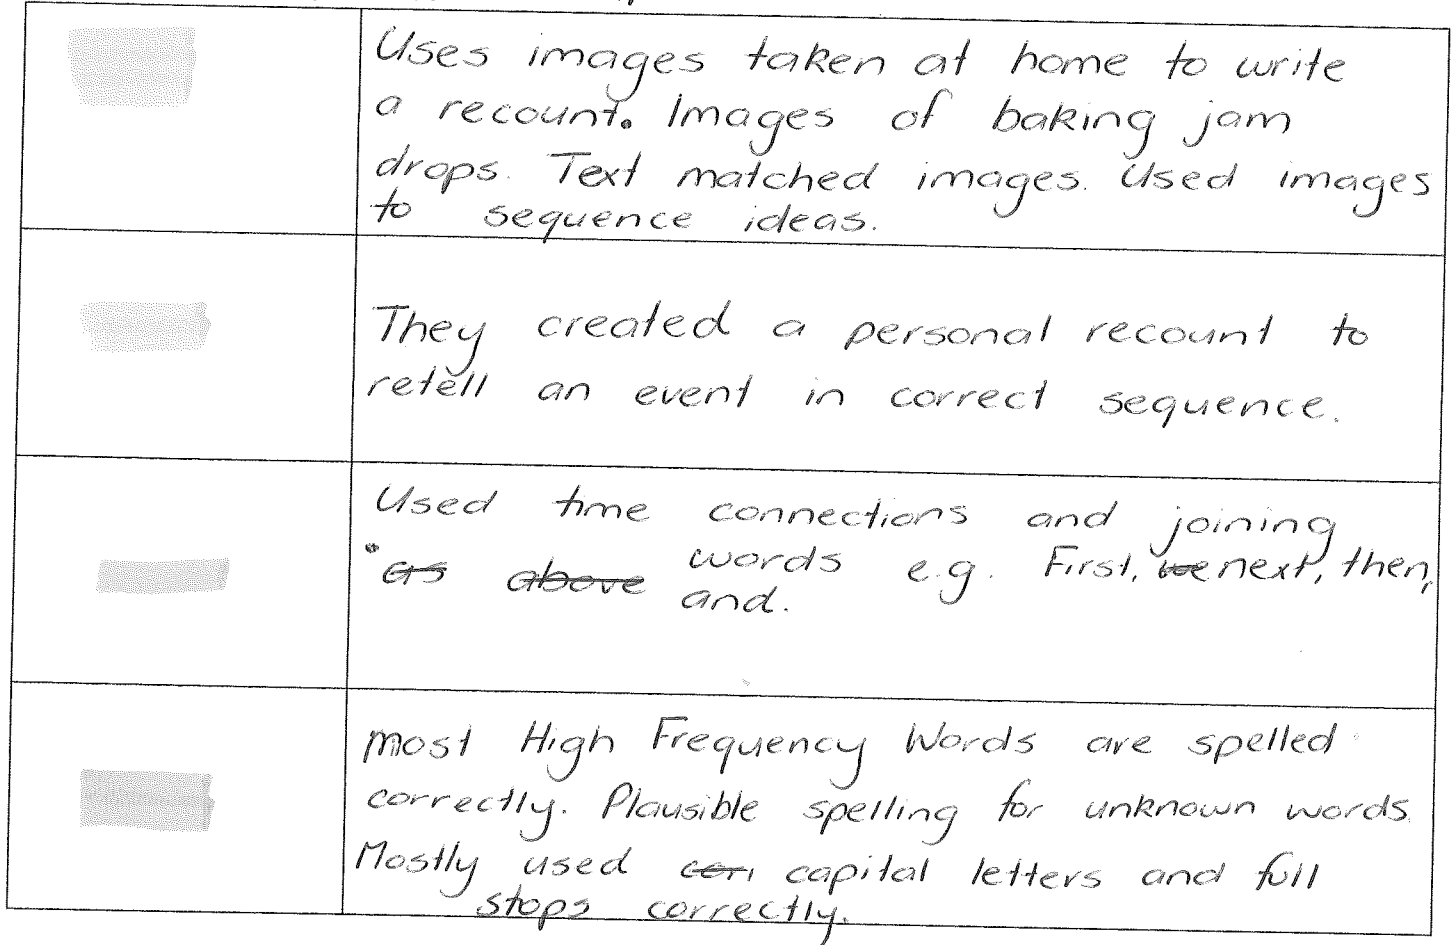 Uses images taken at home to write
a recount. Images of baking jam
drops. Text matched images. Used images
to sequence ideas.
They created a personal recount to
retell an event in correct sequence.
Used time connections and joining
as above words e.g. First, we next, then,
and.
Most High Frequency Words are spelled
correctly. Plausible spelling for unknown words.
Mostly used cori capital letters and full
stops correctly.